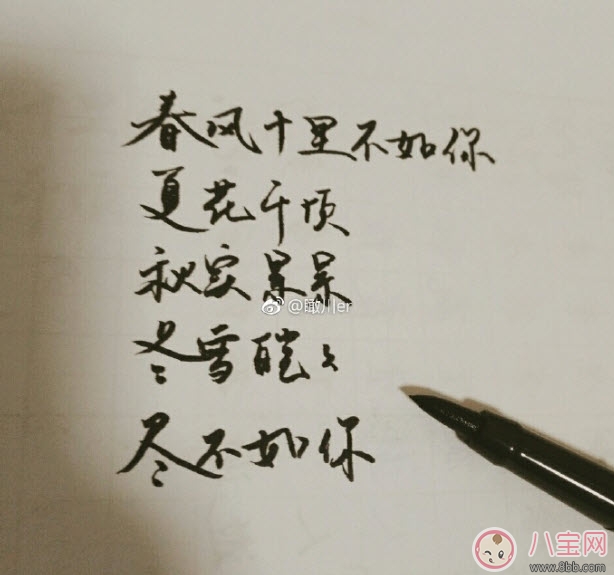 春风十里不如你
夏花千顷
秋实杲杲
@瞰川er
冬雪皑々
尽不如你
八宝网
www.8bb.com